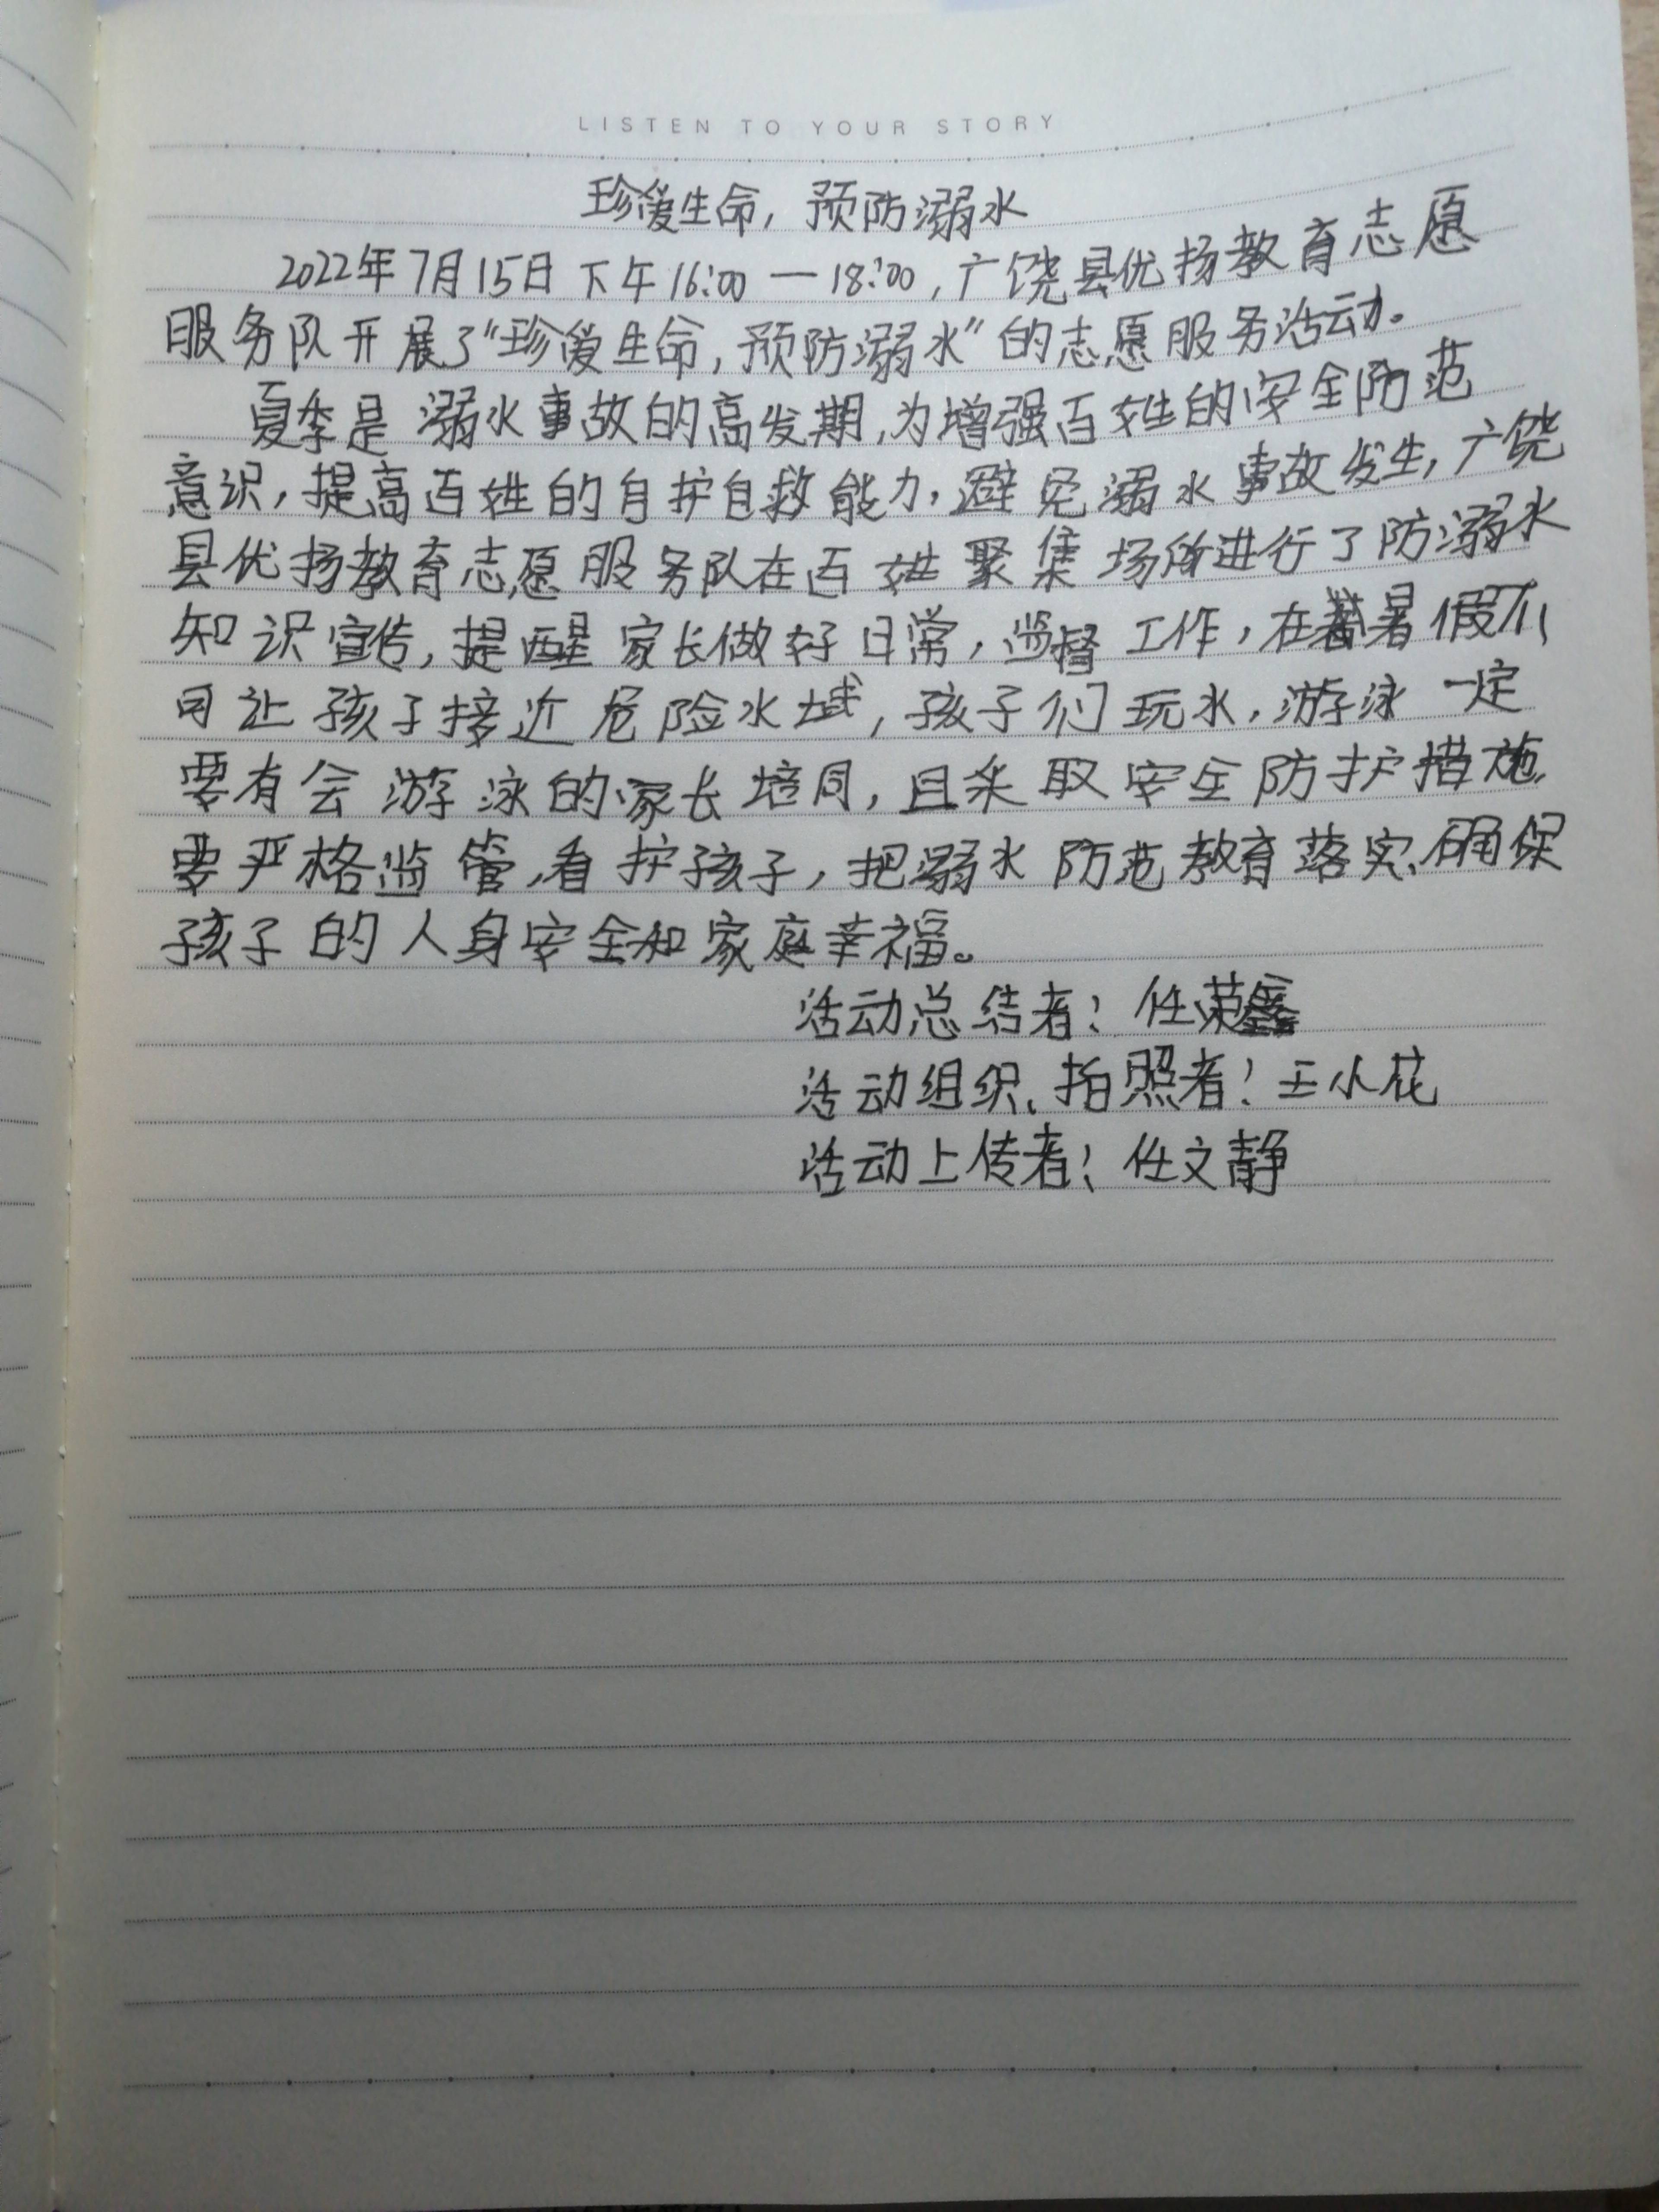 LISTEN TO YOUR STORY
珍爱生命，预防溺水
2022年7月15日下午16:00—18:00，广饶县优扬教育志愿
服务队开展了“珍爱生命，预防溺水”的志愿服务活动。
夏季是溺水事故的高发期，为增强百姓的安全防范
意识，提高百姓的自护自救能力，避免溺水事故发生，广饶
县优扬教育志愿服务队在百姓聚集场所进行了防溺水
知识宣传，提醒家长做好日常，监督工作，在暑假不
可让孩子接近危险水域，孩子们玩水，游泳一定
要有会游泳的家长培同，且采取安全防护措施，
要严格监管，看护孩子，把溺水防范教育落实、确保
孩子的人身安全和家庭幸福。
活动总结者：任荣鑫
活动组织、拍照者：王小花
活动上传者：任文静